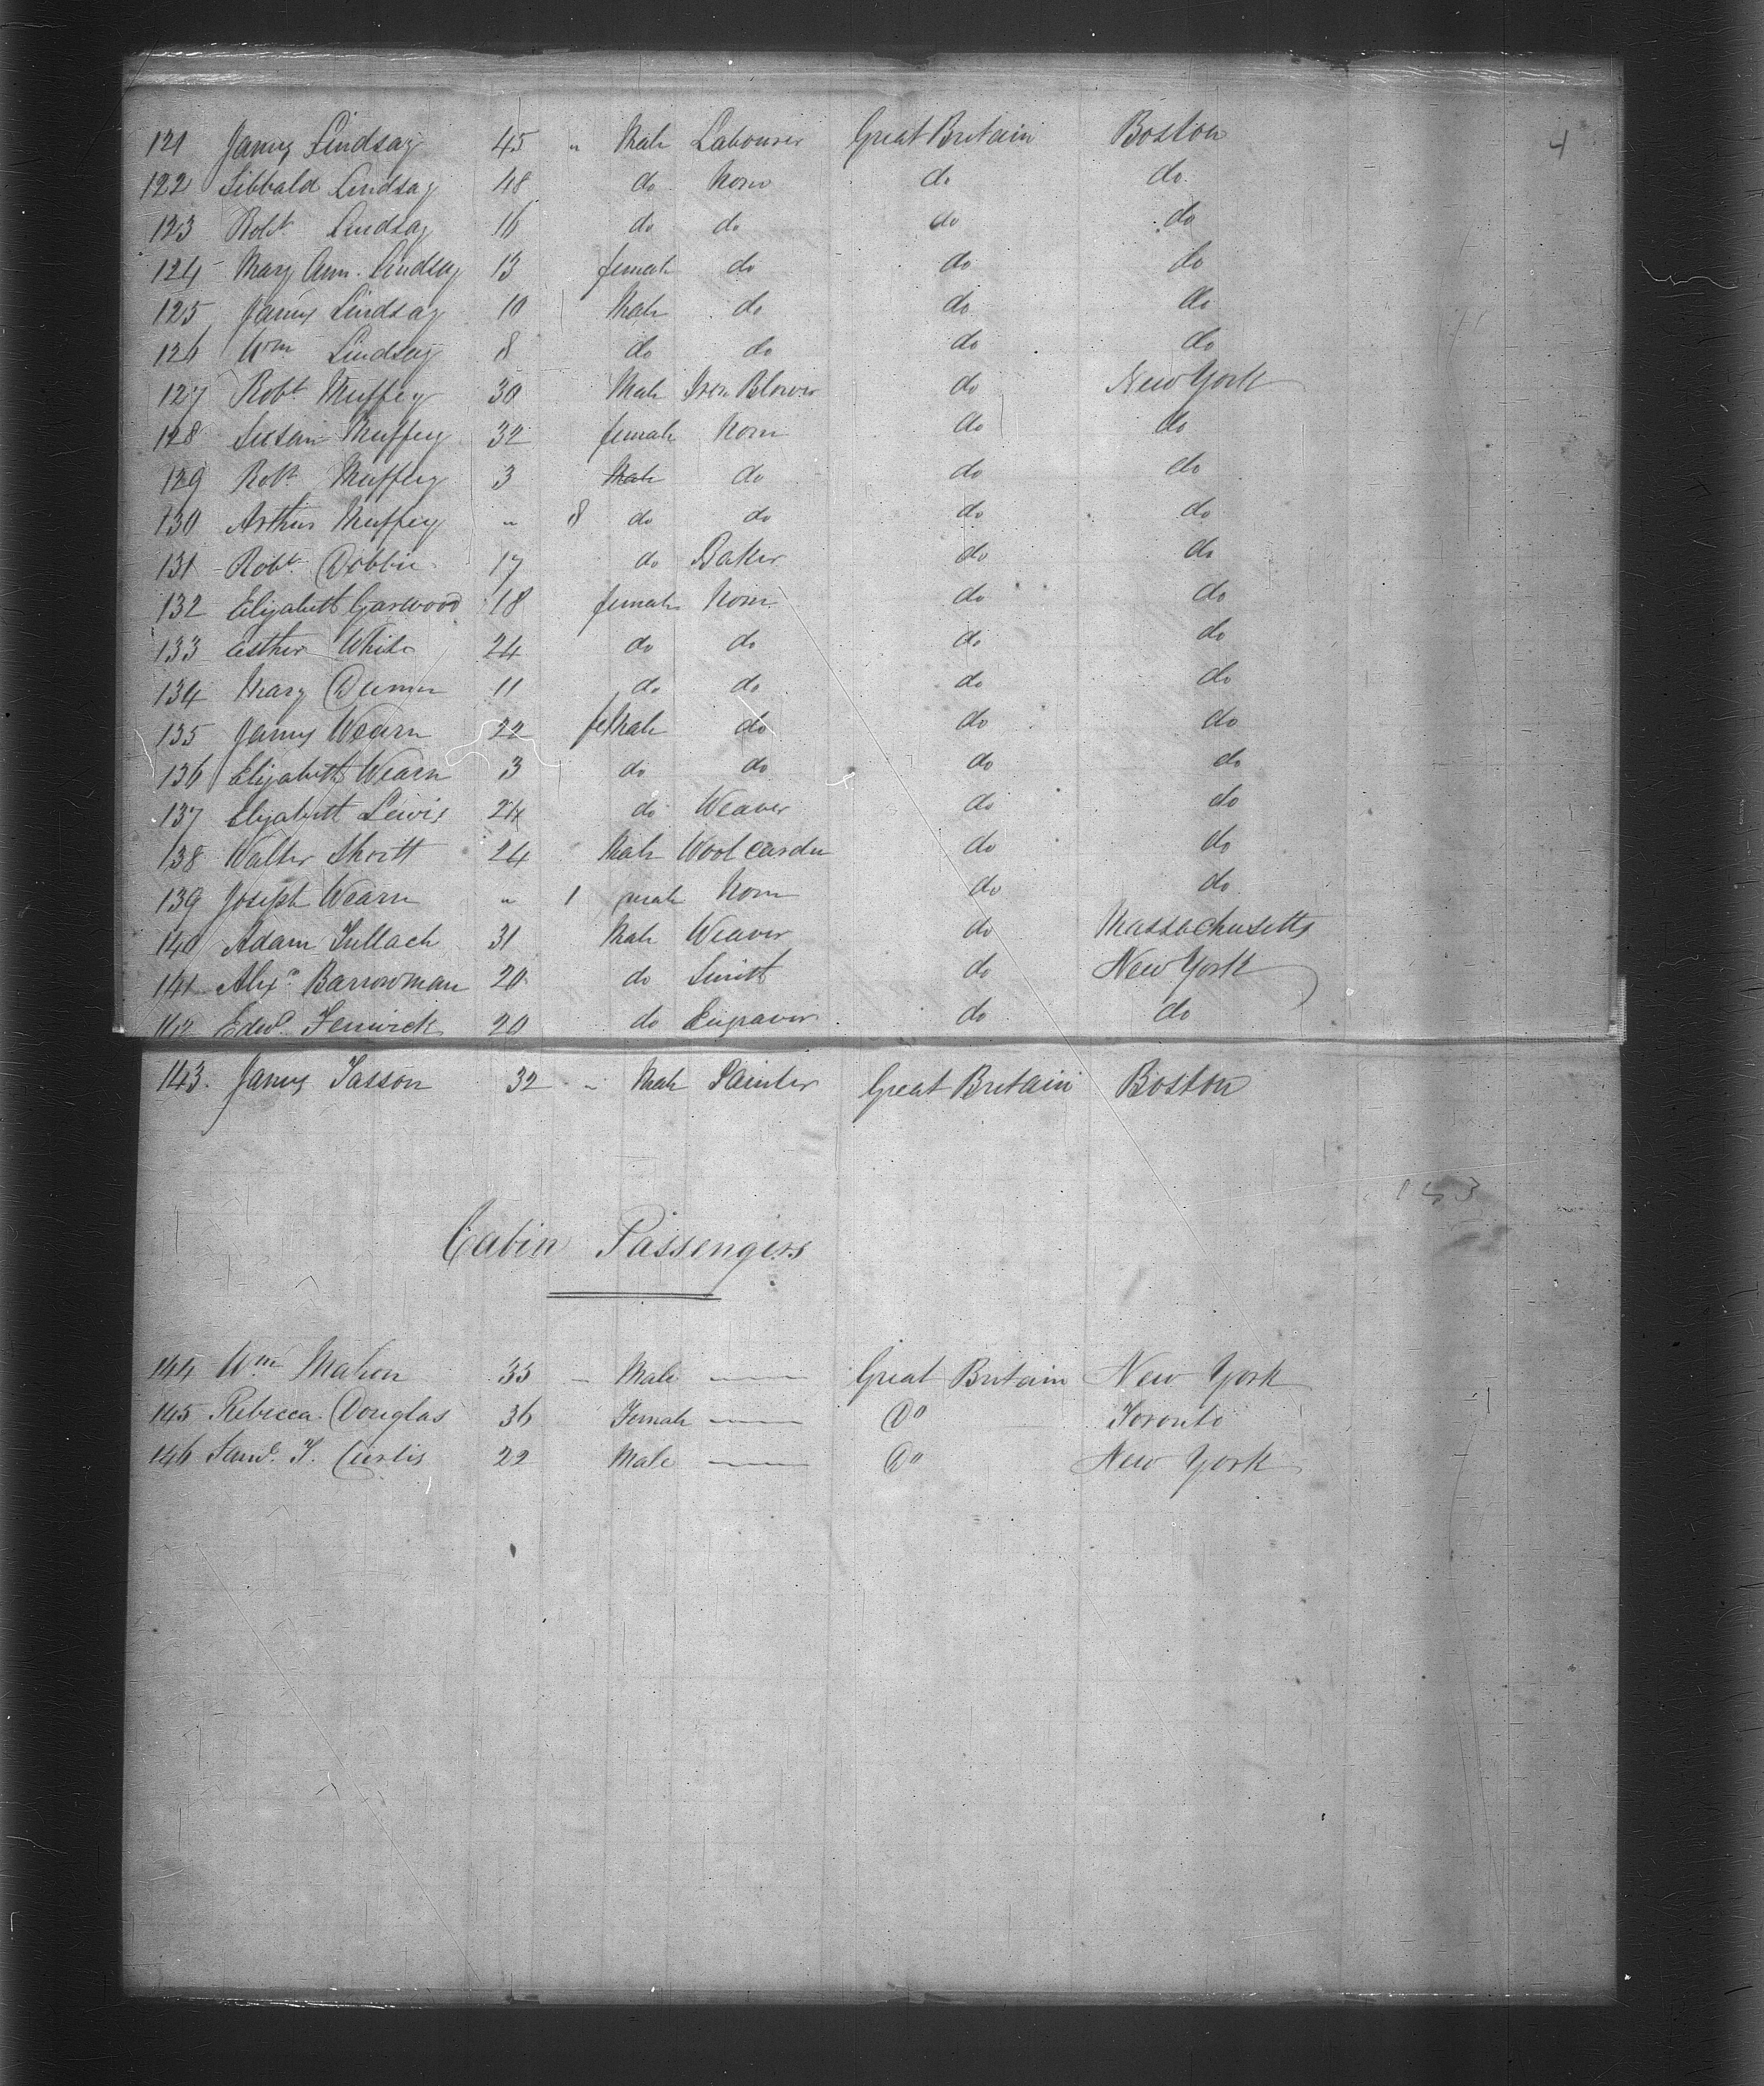 4
121 James Lindsay 45 " Male Labourer Great Britain Boston
122 Sibbald Lindsay 48 do None do do
123 Robt Lindsay 16 do do do do
124 Mary Ann Lindsay 13 female do do do
125 James Lindsay 10 Male do do do
126 Wm Lindsay 8 do do do do
127 Robt Muffey 30 Male Iron Blower do New York
128 Susan Muffey 32 female None do do
129 Robt Muffey 3 Male do do do
130 Arthur Muffey " 8 do do do do
131 Robt Dobbie 17 do Baker do do
132 Elizabeth Garwood 18 female None do do
133 Esther White 24 do do do do
134 Mary 11 do do do do
135 James Wearn 22 feMale do do do
136 Elizabeth Wearn 3 do do do do
137 Elizabeth Lewis 24 do Weaver do do
138 Walter Shortt 24 Male Wool carder do do
139 Joseph Wearn " 1 male None do do
140 Adam Tullach 31 Male Weaver do Massachusetts
141 Alexr Barrowman 20 do Smith do New York
142 Edwd Fenwick 20 do Engraver do do
143. James Tasson 32 " Male Painter Great Britain Boston
143
Cabin Passengers
144 Wm Mahon 35 – Male — Great Britain New York
145 Rebecca Douglas 36 Female — Do Toronto
146 Saml. T. Curtis 22 Male — Do New York